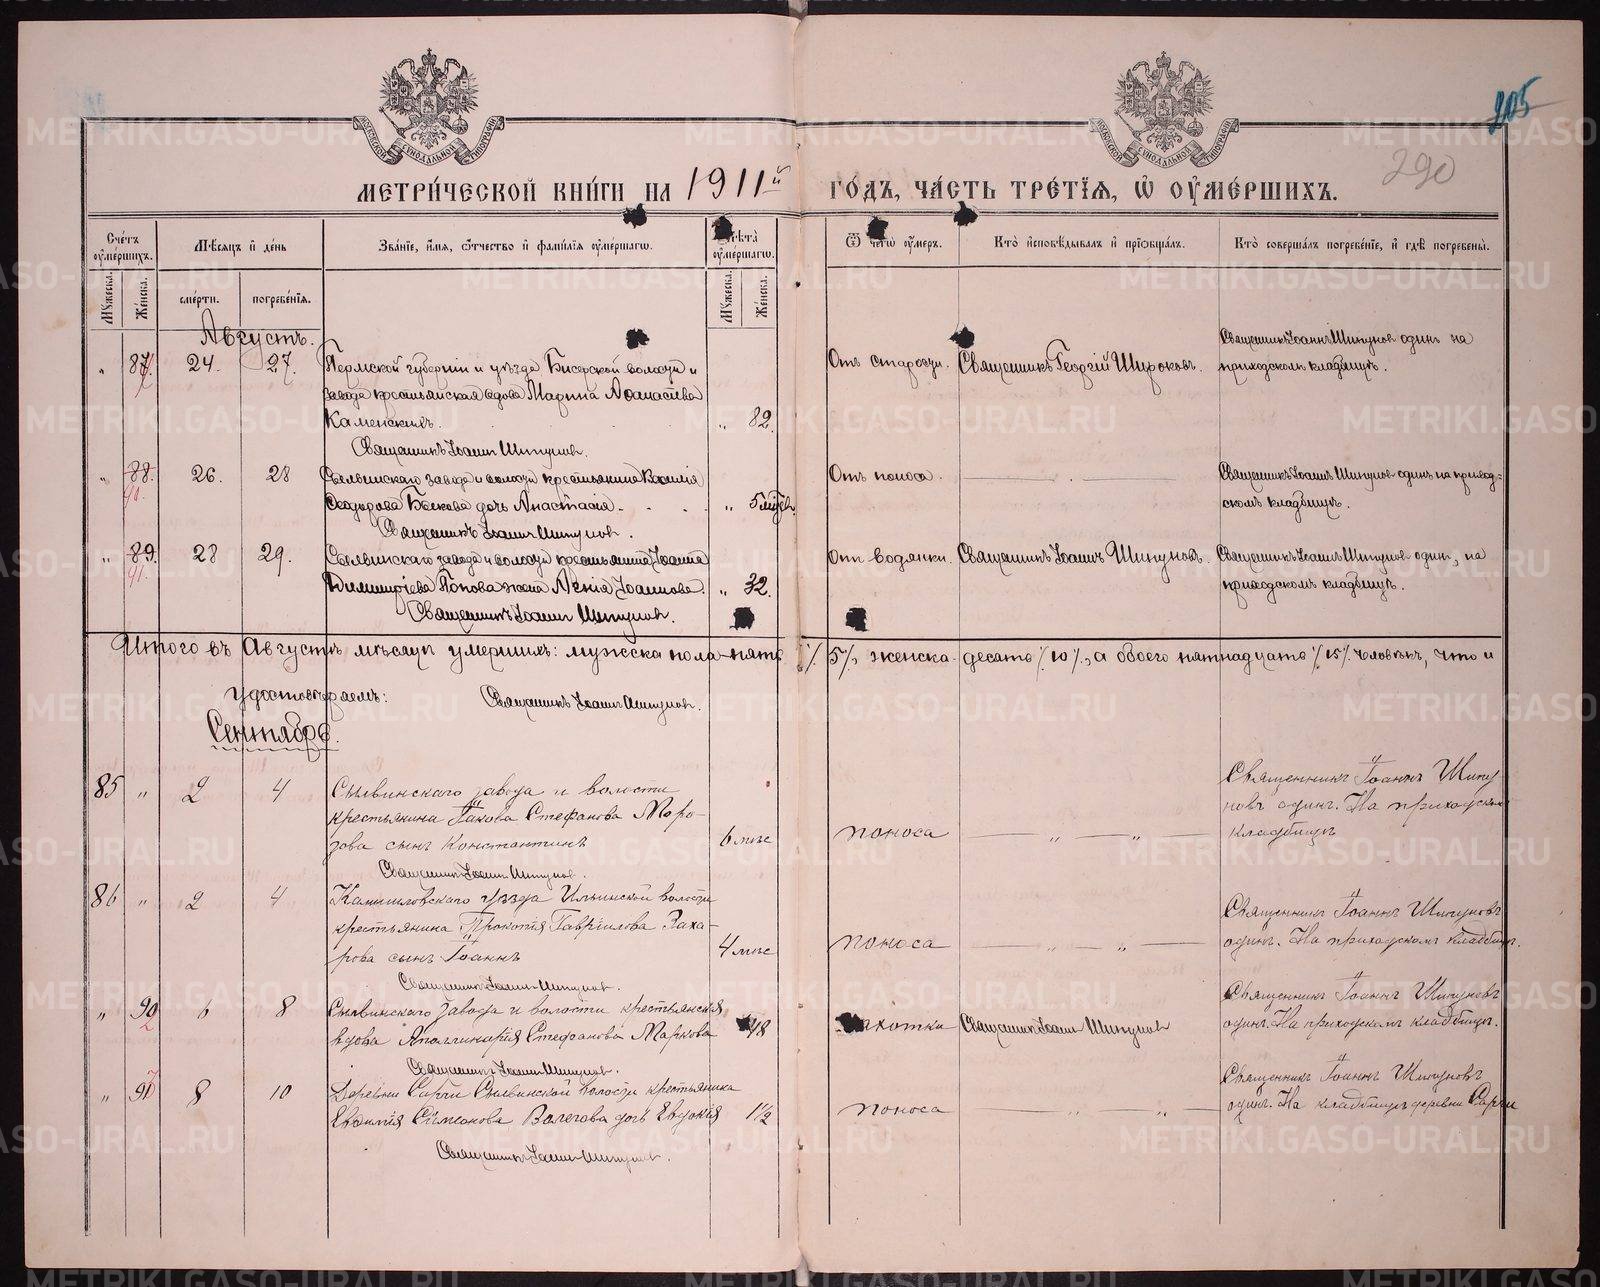 205
290
МЕТРИ́ЧЕСКОЙ КНИ́ГИ НА 1911й ГО́ДЪ, ЧА́СТЬ ТРЕ́ТЇѦ, Ѿ ОУМЕ́РШИХЪ.
Сче́тъ оуме́ршихъ.
Мѣ́сѧцъ и҆ де́нь
Зва́нїе, и҆́мѧ, ѻ҆́тчество и҆ фами́лїѧ оуме́ршагѡ.
Лѣ́та оуме́ршагѡ.
Ѿ чегѡ̀ оу́меръ.
Кто̀ и҆сповѣ́дывалъ и҆ прїѡбща́лъ.
Кто̀ соверша́лъ погребе́нїе, и҆ гдѣ̀ погребены̀.
Мꙋ́жеска.
Же́нска.
сме́рти.
погребе́нїѧ.
Мꙋ́жеска.
Же́нска.
Августъ.
„ 87. 24. 27. Пермской губерніи и уѣзда Бисерской волости и
завода крестьянская вдова Марина Аѳанасіева
Каменскихъ. „ 82.
Священникъ Іоаннъ Шипуновъ.
Отъ старости. Священникъ Георгій Широковъ.
Священникъ Іоаннъ Шипуновъ одинъ на
приходскомъ кладбищѣ.
„ 88. 26. 28 Сылвинскаго завода и волости крестьянина Василія
91.
Ѳеодорова Быкова дочь Анастасія. „ 5 мѣсяц.
Священникъ Іоаннъ Шипуновъ.
Отъ поноса.
Священникъ Іоаннъ Шипуновъ одинъ на приход-
скомъ кладбищѣ.
„ 89. 28 29. Сылвинскаго завода и волости крестьянина Іоанна
91.
Димитріева Попова жена Ксенія Іоаннова. „ 32.
Священникъ Іоаннъ Шипуновъ.
Отъ водянки. Священникъ Іоаннъ Шипуновъ.
Священникъ Іоаннъ Шипуновъ одинъ, на
приходскомъ кладбищѣ.
Итого въ Августѣ мѣсяцѣ умершихъ: мужска пола пять /5/, женска десять /10/, а обоего пятнадцать /15/ человѣкъ, что и
удостовѣряемъ: Священникъ Іоаннъ Шипуновъ.
Сентябрь.
85 „ 2 4 Сылвинскаго завода и волости
крестьянина Іакова Стефанова Моро-
зова сынъ Константинъ 6 мѣс
Священникъ Іоаннъ Шипуновъ.
поноса
Священникъ Іоаннъ Шипу-
новъ одинъ. На приходскомъ
кладбищѣ
86 „ 2 4 Камышловскаго уѣзда Ильинской волости
крестьянина Прокопія Гавріилова Заха-
рова сынъ Іоаннъ 4 мѣс
Священникъ Іоаннъ Шипуновъ.
поноса
Священникъ Іоаннъ Шипуновъ
одинъ. На приходскомъ кладбищѣ.
„ 90 6 8 Сылвинскаго завода и волости крестьянская
2
вдова Аполлинарія Стефанова Маркова 48
Священникъ Іоаннъ Шипуновъ.
чахотки Священникъ Іоаннъ Шипуновъ
Священникъ Іоаннъ Шипуновъ
одинъ. На приходскомъ кладбищѣ.
„ 91 8 10 Деревни Сарги Сылвинской волости крестьянина
Евѳимія Симеонова Волегова дочь Евдокія 1 1/2
Священникъ Іоаннъ Шипуновъ.
поноса
Священникъ Іоаннъ Шипуновъ
одинъ. На кладбищѣ деревни Сарги